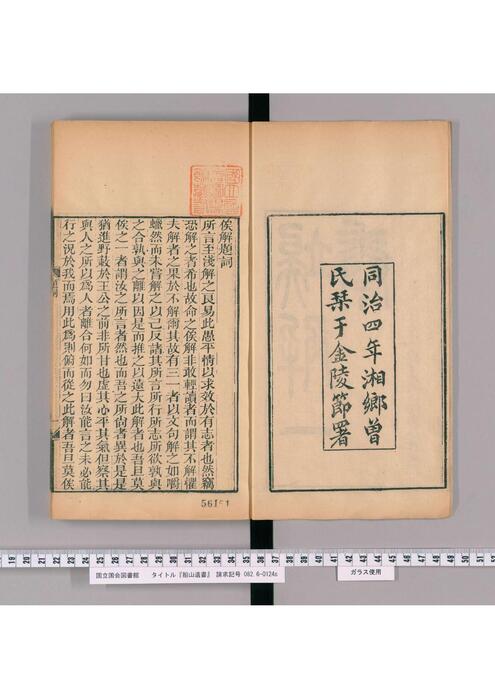 同治四年湘鄉曾
氏栞于金陵節署
俟解題詞
所言至淺解之良易此愚平情以求效於有志者也然竊
恐解之者希也故命之俟解非敢輕讀者而謂其不解懼
夫解者之果於不解爾其故有三一者以文句解之如嚼
蠟然而未嘗解之以己反諸其所言所行所志所欲孰與
之合孰與之離以因是而推之以遠大此解者也吾旦莫
俟之一者謂汝之所言者然也而吾之所尙者異於是是
猶進野蔌於王公之前非所甘也虛其心平其氣但察其
與人之所以爲人者離合何如而勿曰汝能言之未必能
行之況於我而焉用此爲則俯而從之此解者吾旦莫俟
56151
国立国会図書館 タイトル『船山遺書』 請求記号 082.6-O124s
ガラス使用